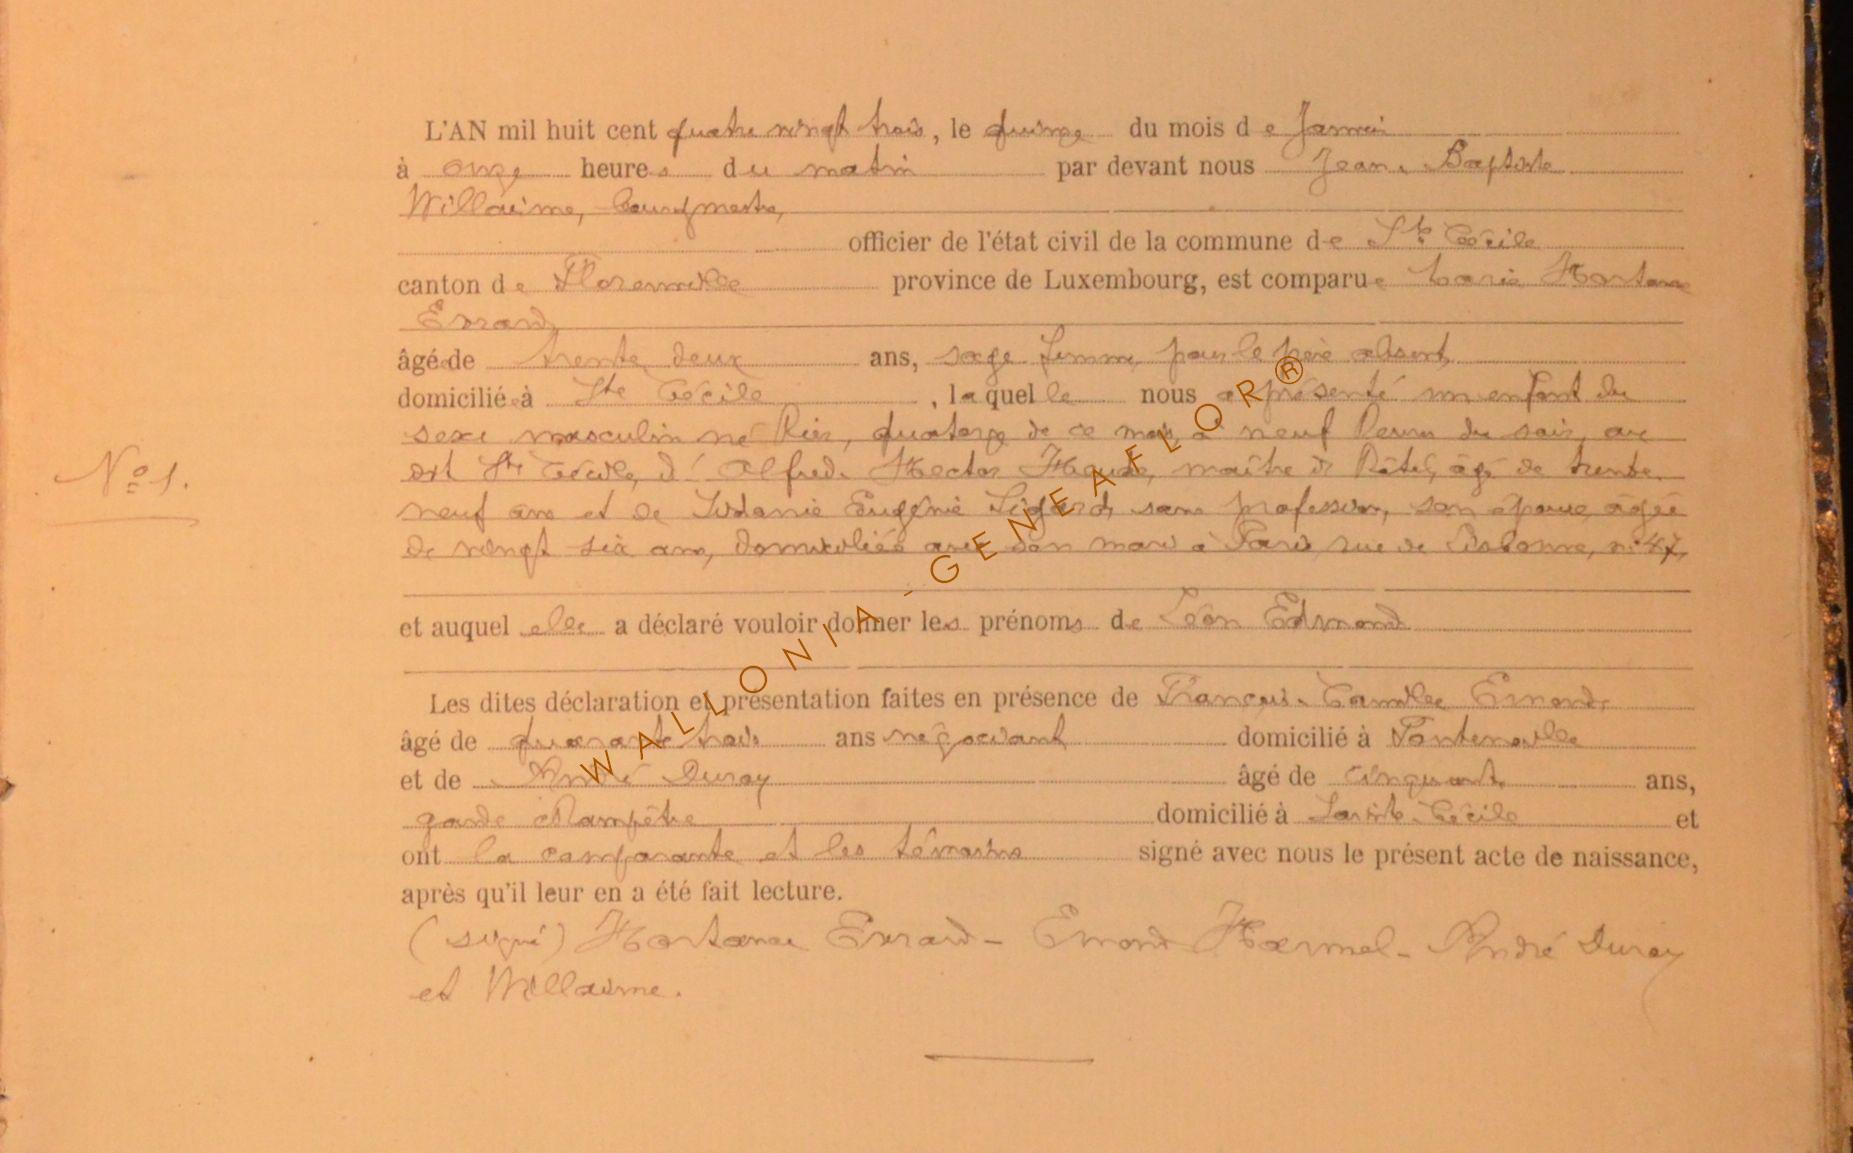 L'AN mil huit cent quatre vingt trois, le quinze du mois de Janvier
à onze heures du matin par devant nous Jean-Baptiste
Willaime, bourgmestre,
officier de l'état civil de la commune de Ste Cécile
canton de Florenville province de Luxembourg, est comparue Marie Hortance
Errard,
âgée de trente deux ans, sage femme, pour le père absent,
domiciliée à Ste Cécile, laquelle nous a présenté un enfant du
sexe masculin né hier, quatorze de ce mois, à neuf heures du soir, au
dit Ste Cécile, d' Alfred Hector maître d'hôtel, âgé de trente
neuf ans et de Eugénie sans profession, son épouse, âgée
de vingt six ans, domiciliés avec son mari à Paris, rue de Lisbonne, no 47,
et auquel elle a déclaré vouloir donner les prénoms de Léon Edmond
Les dites déclaration et présentation faites en présence de François-Camille Emond,
âgé de quarante trois ans négociant domicilié à Fontenoille
et de André Duroy âgé de cinquante ans,
garde champêtre domicilié à Sainte-Cécile et
ont la comparante et les témoins signé avec nous le présent acte de naissance,
après qu'il leur en a été fait lecture.
(signé) Hortance Errard - Emond Harmel - André Duroy
et Willaime.
No 1.
WALLONIA - GENEAFLOR®